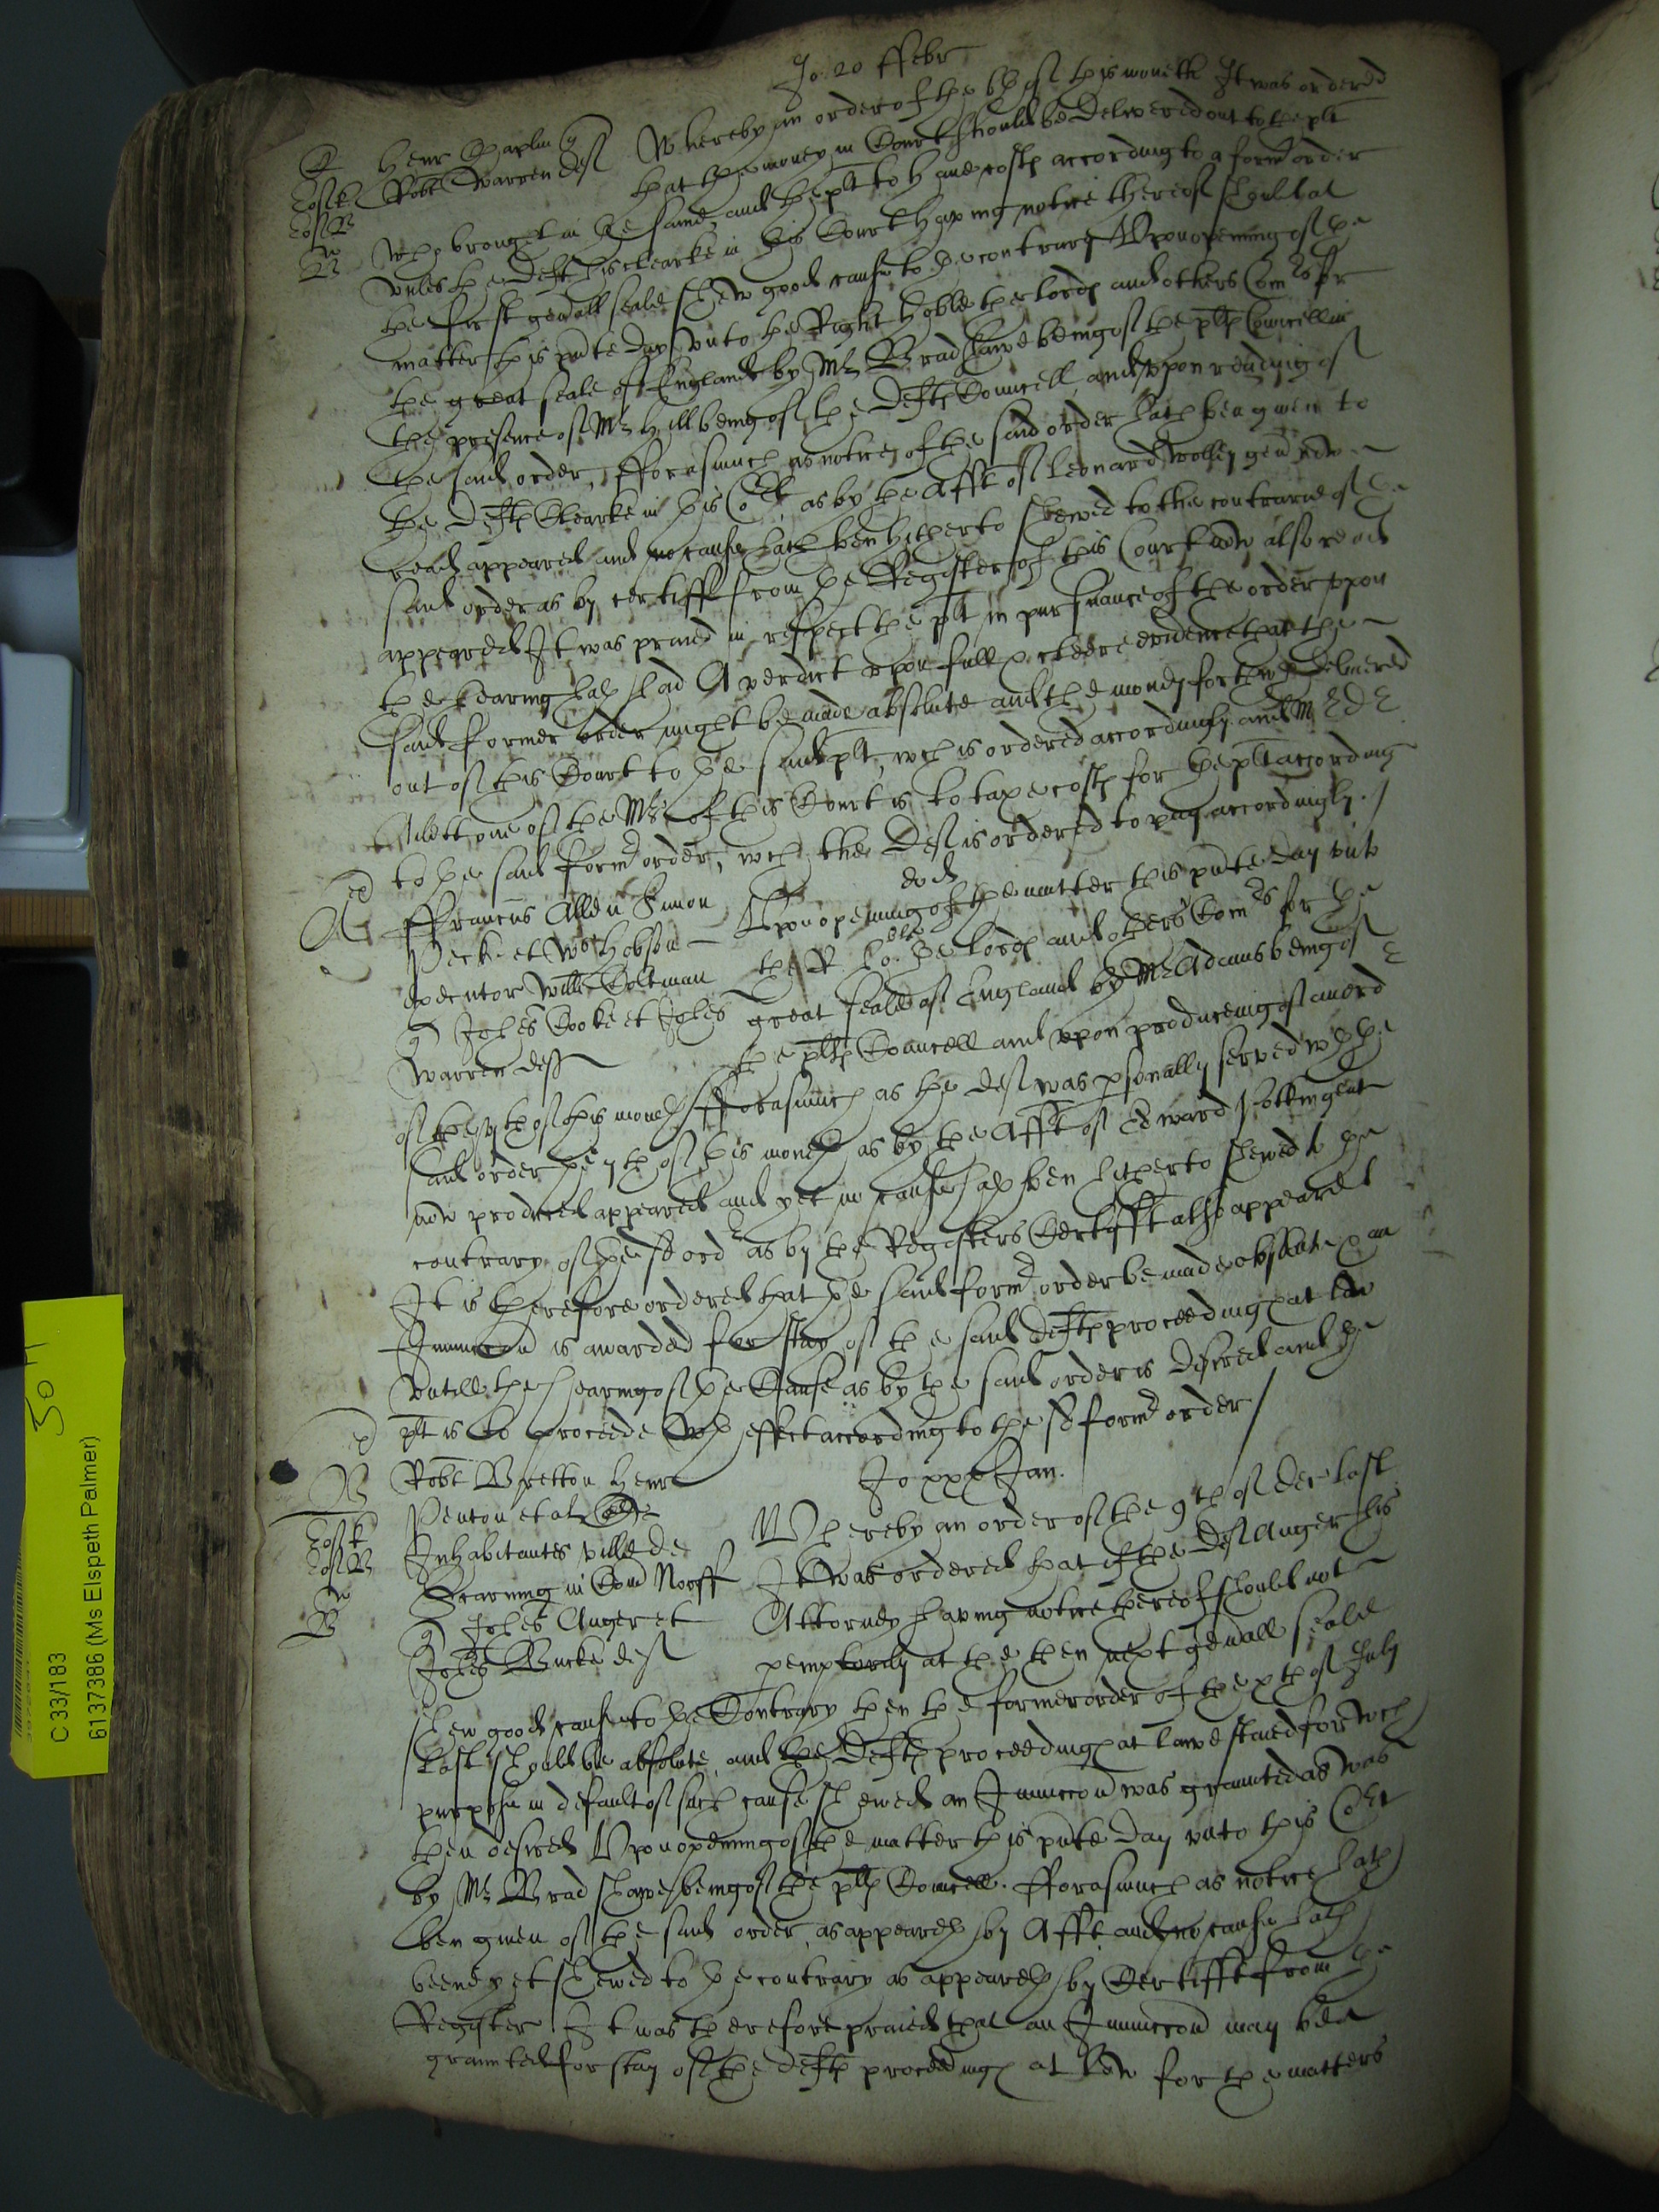 Jo 20 ffebr
Henr Chaplin q
Robt Warren def Whereby an order of the of this moneth It was ordered
that the money in Court should be delivered out to the plt
who brought in the same and the plt to have costs according to a formr order
unles the Deft his clearke in this Court having notice thereof should at
the first genall seale shew good cause to the contrary Upon opening of the
matter this pnte day unto the Right Hoble the lords and others Comrs for
the great seale of England by Mr Bradshawe being of the plts Councell in
the presence of Mr Hill being of the Defts Councell and upon reading of
the said order, fforasmuch as notice of the said order hath ben given to
the Defts Clearke in this Cort as by the Afft of Leonard Wolley gen now
read appeared and no cause hath ben hitherto shewed to the contrarie of the
said order as by certifft from the Register of this Court now also read
appeared It was praied in respect the plt in pursuance of the order upon
the hearing hath had A verdict upon full & cleere evidence that the
said former order might be made absolute and the money forthwth delivered
out of this Court to the said plt, wch is ordered accordingly and Mr
one of the Mrs of this Court is to taxe costs for the plt according
to the said formr order, wch the Def is ordered to pay accordingly. /
ffranciscus Allen Simon eod
Peck et Wm Hobson Upon opening of the matter this pnte day unto
executor Willi Coltman the Rt Ho:ble the lords and others Comrs for the
q Johes Cooke et Johes great seale of England by Mr Adams being of
Warren deff the plts Councell and upon produceing of an ord
of the of this moneth fforasmuch as the def was psonally served wth the
said order the 7th of this moneth as by the Afft of Edward
now produced appeared and yet no cause hath ben hitherto shewed to the
contrary of the sd ordr as by the Registers Certifft also appeared
It is therefore ordered that the said formr order be made absolute & an
Iniuncion is awarded for stay of the said Defts proceedings at law
untill the hearing of the Cause as by the said order is desired and the
plt is to proceede wth effect according to the sd formr order /
Robt Bretton Henr Jo xxx Jan.
Penton et al Whereby an order of the 9th of Dec last
Inhabitantes ville de It was ordered that if the Def Auger his
Scarning in Com Norff Attorney having notice thereof should not
q Johes Auger et pemptorily at the then next genall seale
Johes Bucke def
shew good cause to the Contrary then the former order of the xth of July
last should be absolute, and the Defts proceedings at lawe staied for wch
purpose in default of such cause shewed an Iniuncion was graunted as was
then desired Upon opening of the matter this pnte day unto this Cort
by Mr Bradshawe being of the plts Councell. fforasmuch as notice hath
ben given of the said order, as appeareth by Afft and no cause hath
beene yet shewed to the contrary as appeareth by Certifft from the
Register It was therefore praied that an Iniuncion may bee
graunted for stay of the Defts proceedings at law for the matters
30 H
C 33/183
6137386 (Ms Elspeth Palmer)